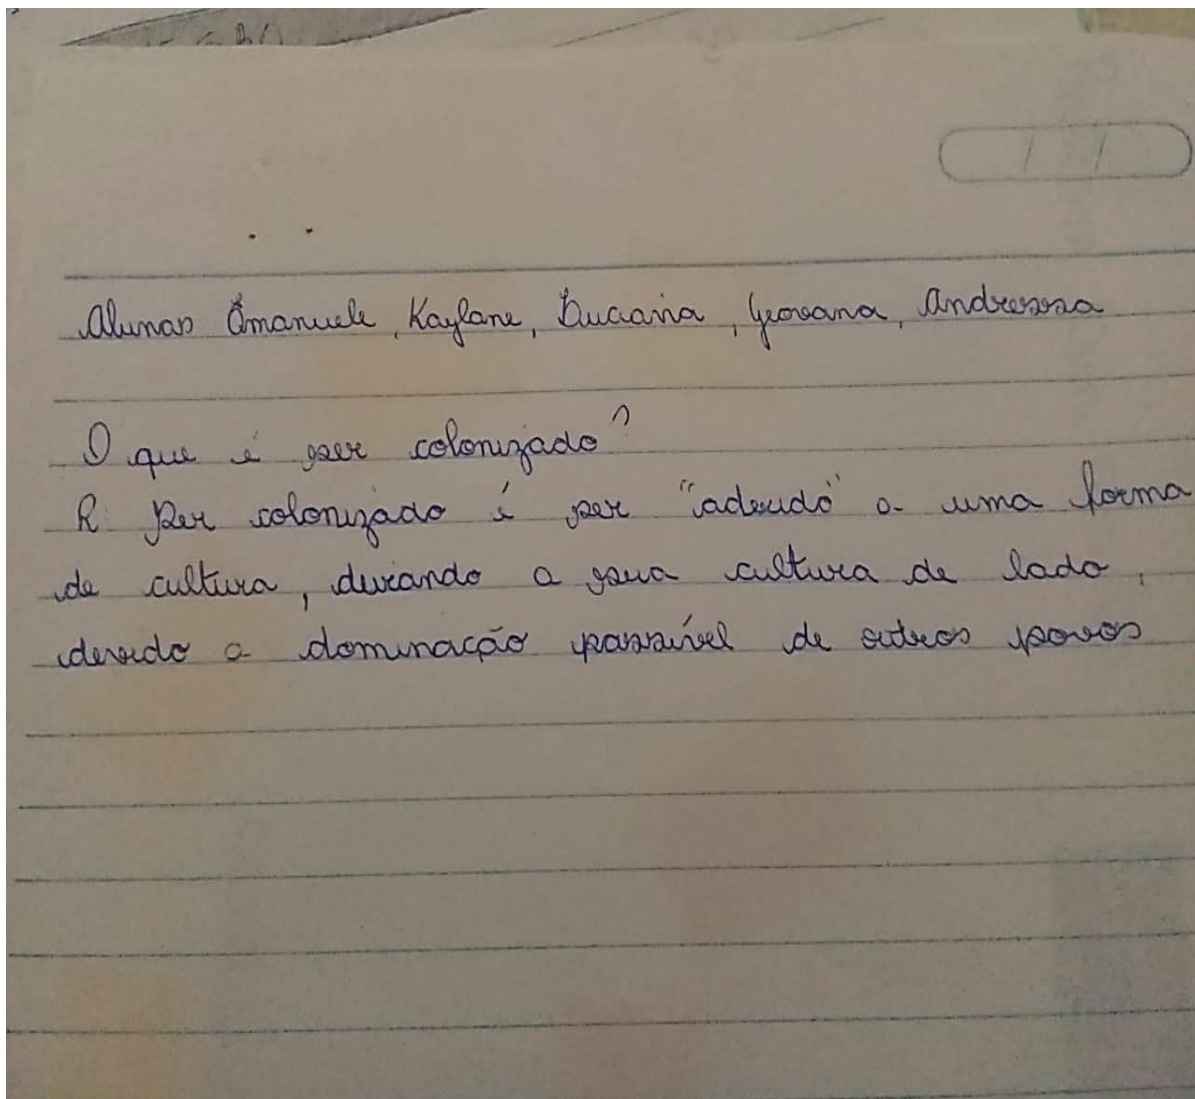 Alunas Emanuele, Kaylane, Luciana, Geovana, Andressa
O que é ser colonizado?
R: Ser colonizado é ser "aderido" a uma forma
de cultura, deixando a sua cultura de lado,
devido a dominação passível de outros povos